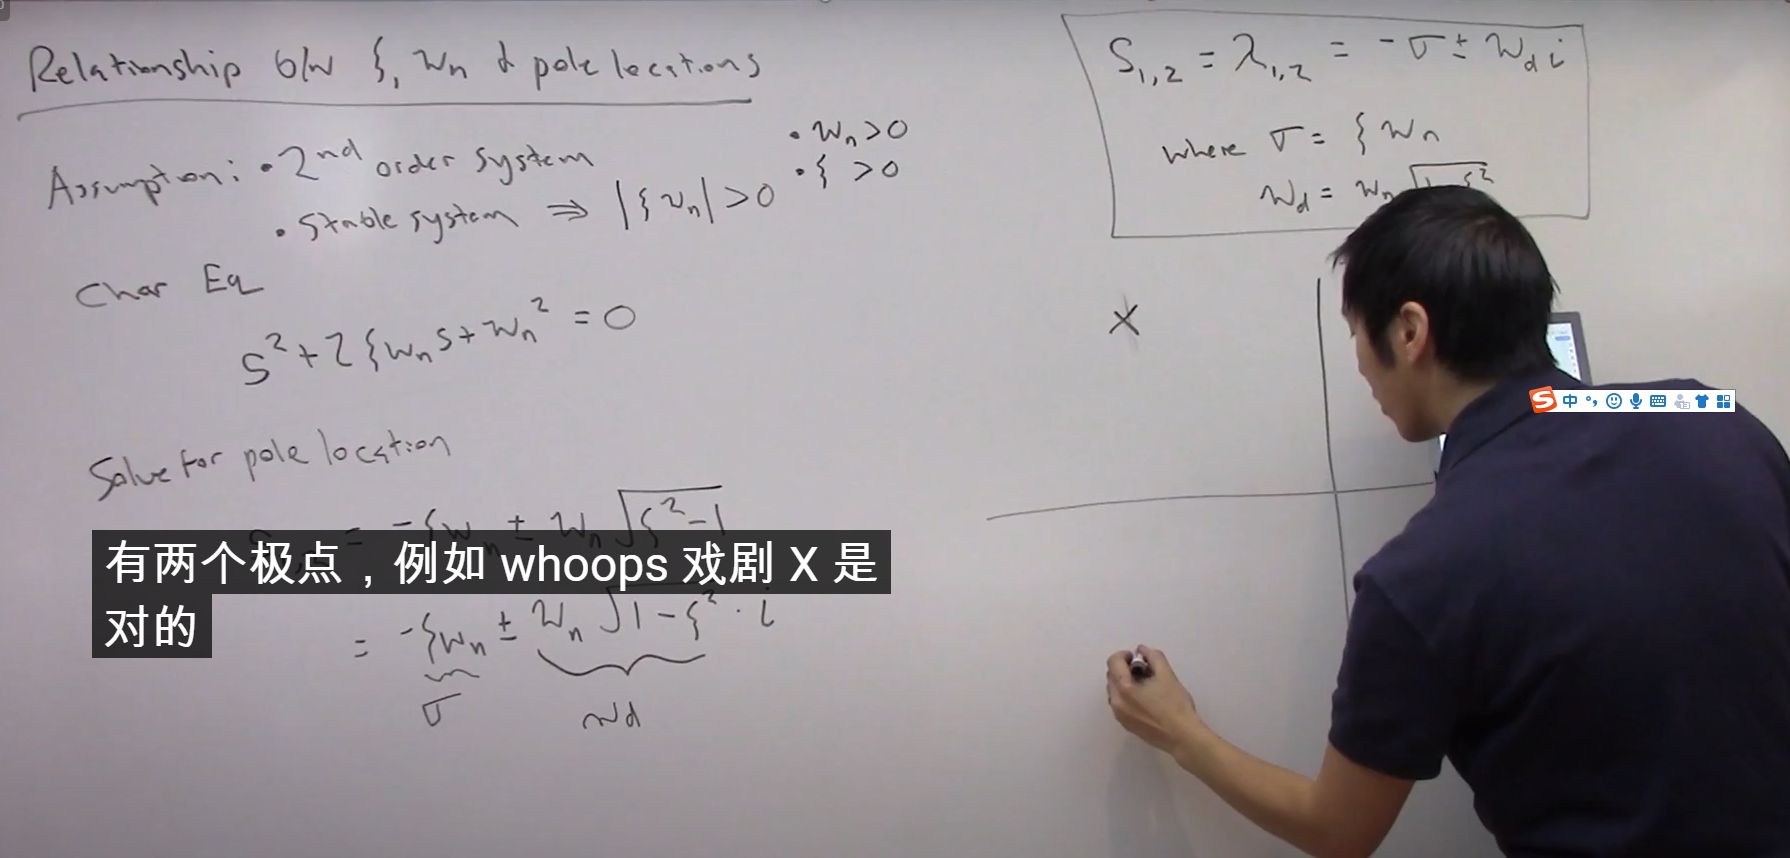 Relationship b/w ζ, ωn & pole locations
Assumption: • 2nd order system
• Stable system ⇒ |ζ ωn| > 0
• ωn > 0
• ζ > 0
Char Eq
s² + 2ζωn s + ωn² = 0
Solve for pole location
= -ζωn ± ωn √(ζ² - 1)
= -ζωn ± ωn √(1 - ζ²) · i
σ
ωd
S1,2 = λ1,2 = -σ ± ωd i
where σ = ζ ωn
ωd = ωn
X
有两个极点，例如 whoops 戏剧 X 是
对的
中